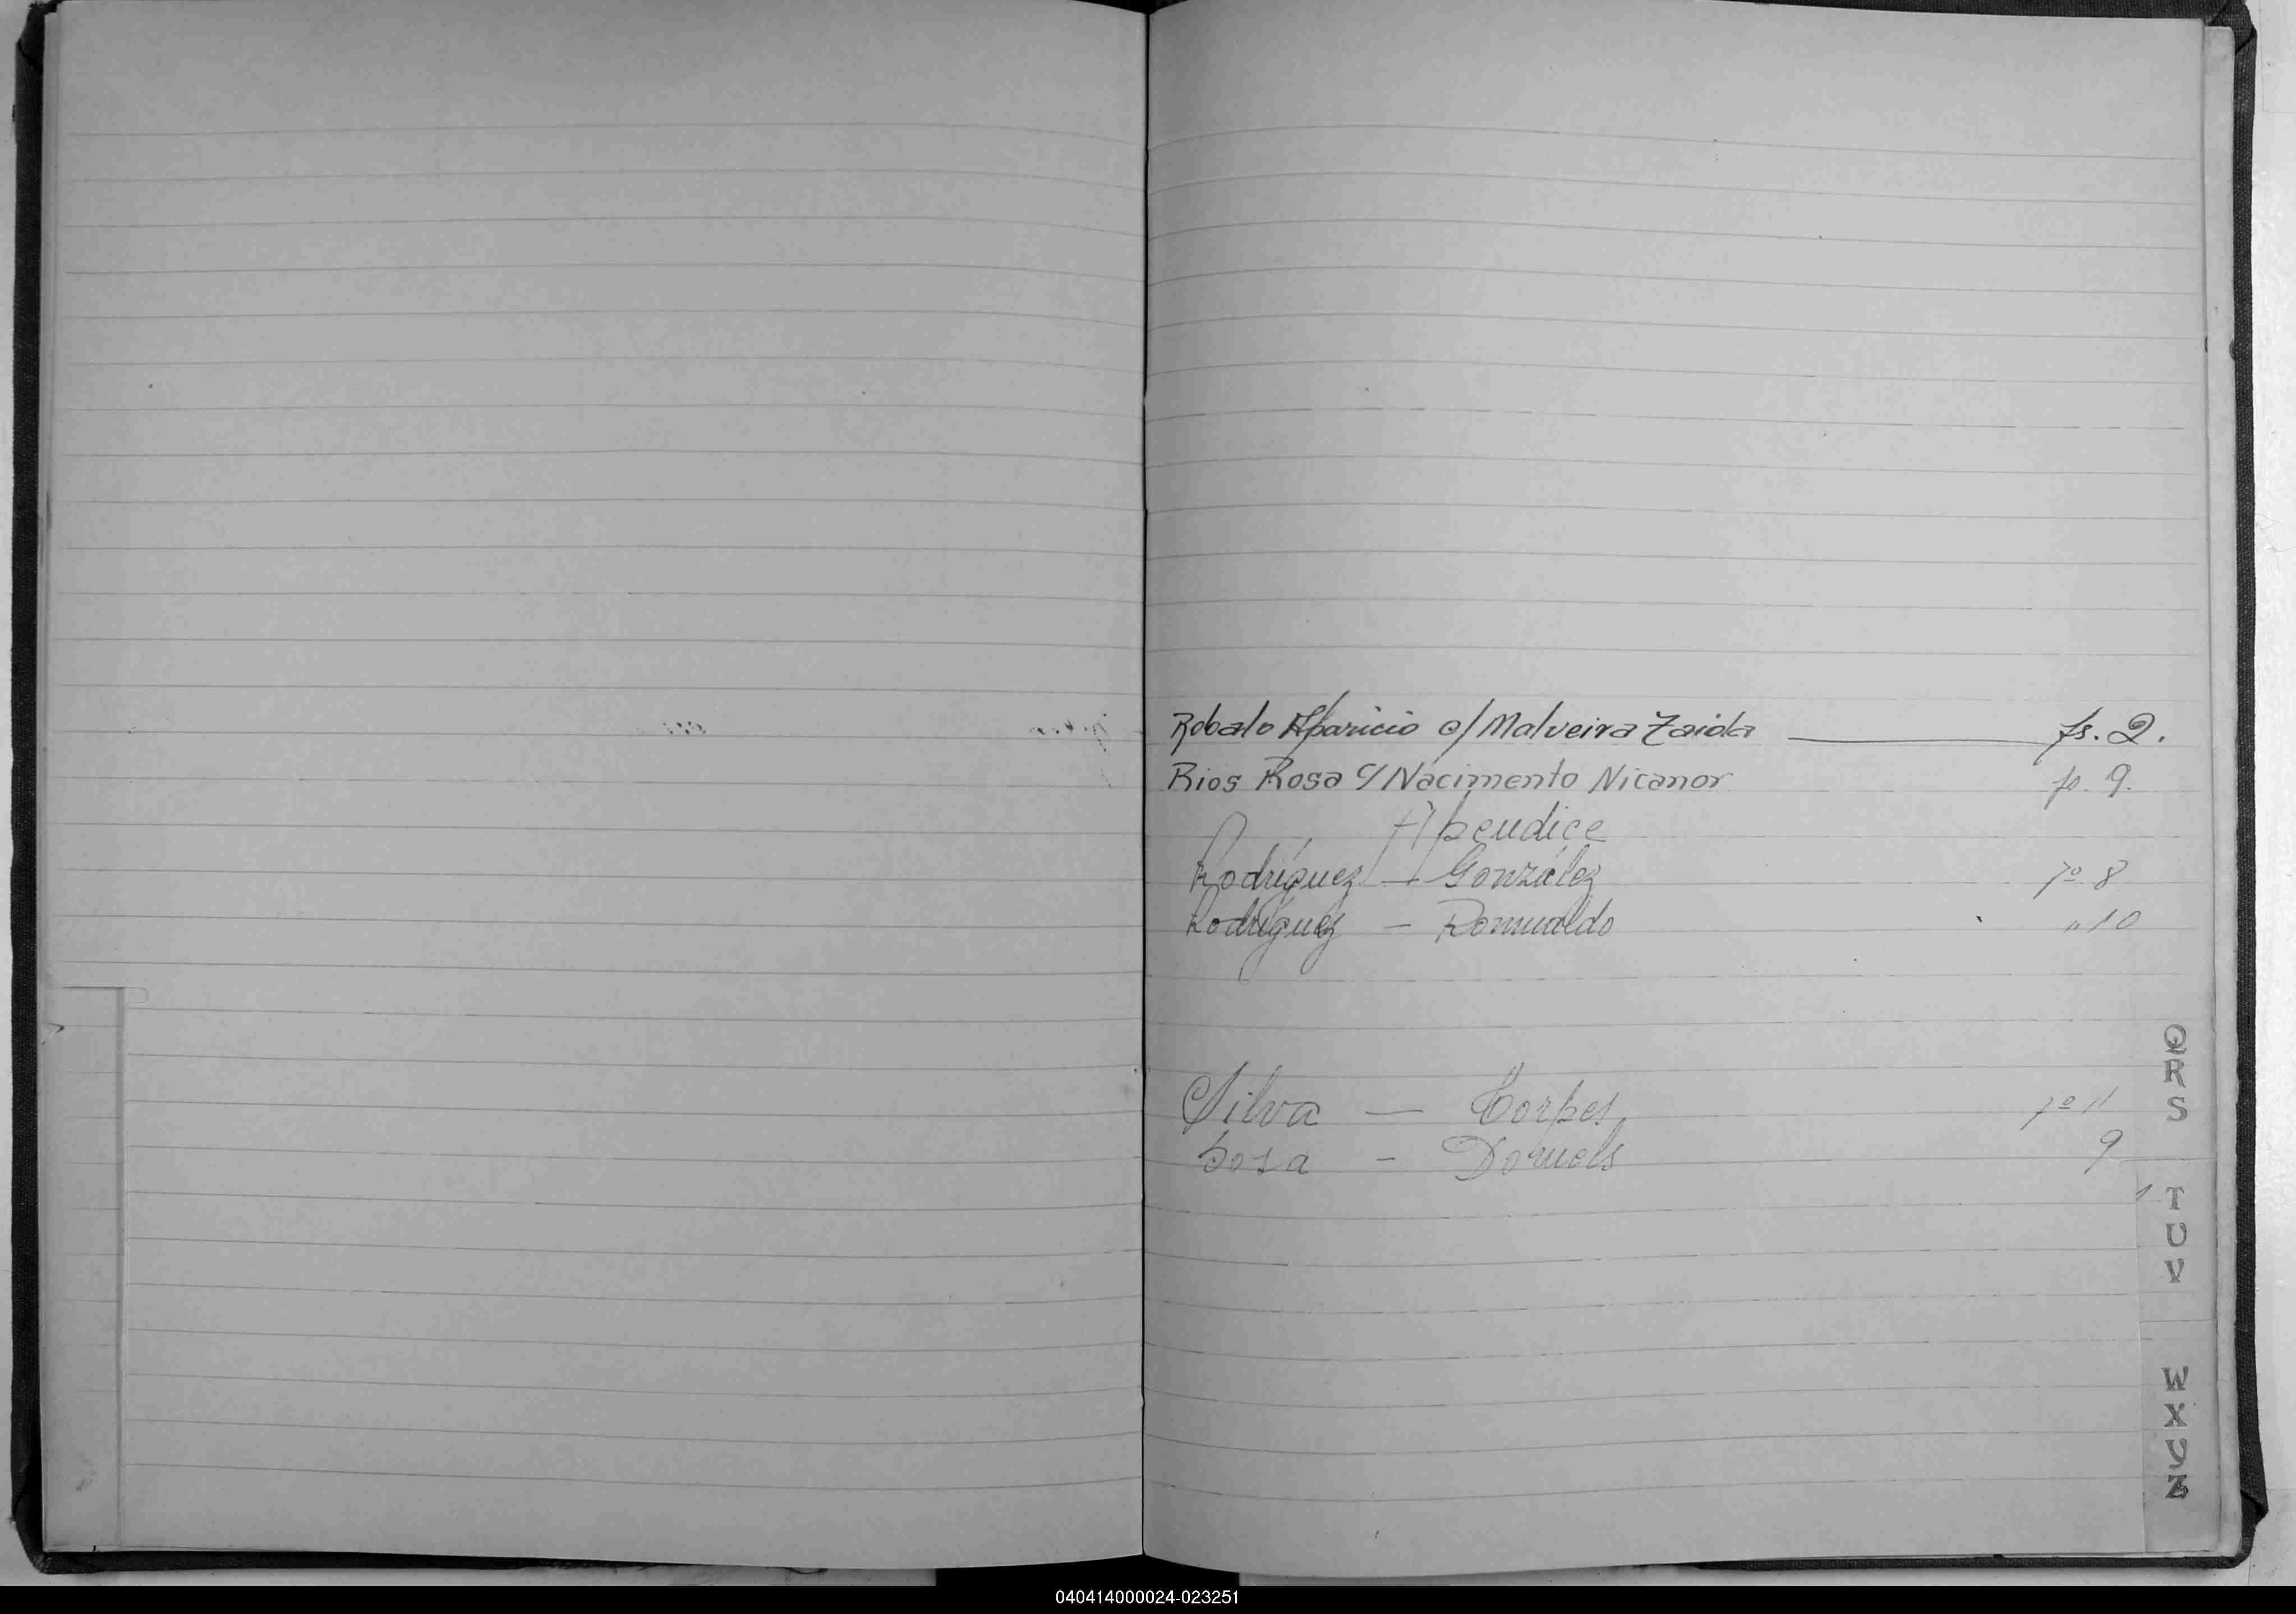 Robalo Aparicio c/ Malveira Zaida fs. 2.
Rios Rosa c/ Nacimento Nicanor fs. 9.
Apendice
Rodríguez — González fº 8
Rodríguez — Romualdo " 10
Silva — Torbes fº 11
Sosa - Dornels 9
Q
R
S
T
U
V
W
X
Y
Z
040414000024-023251